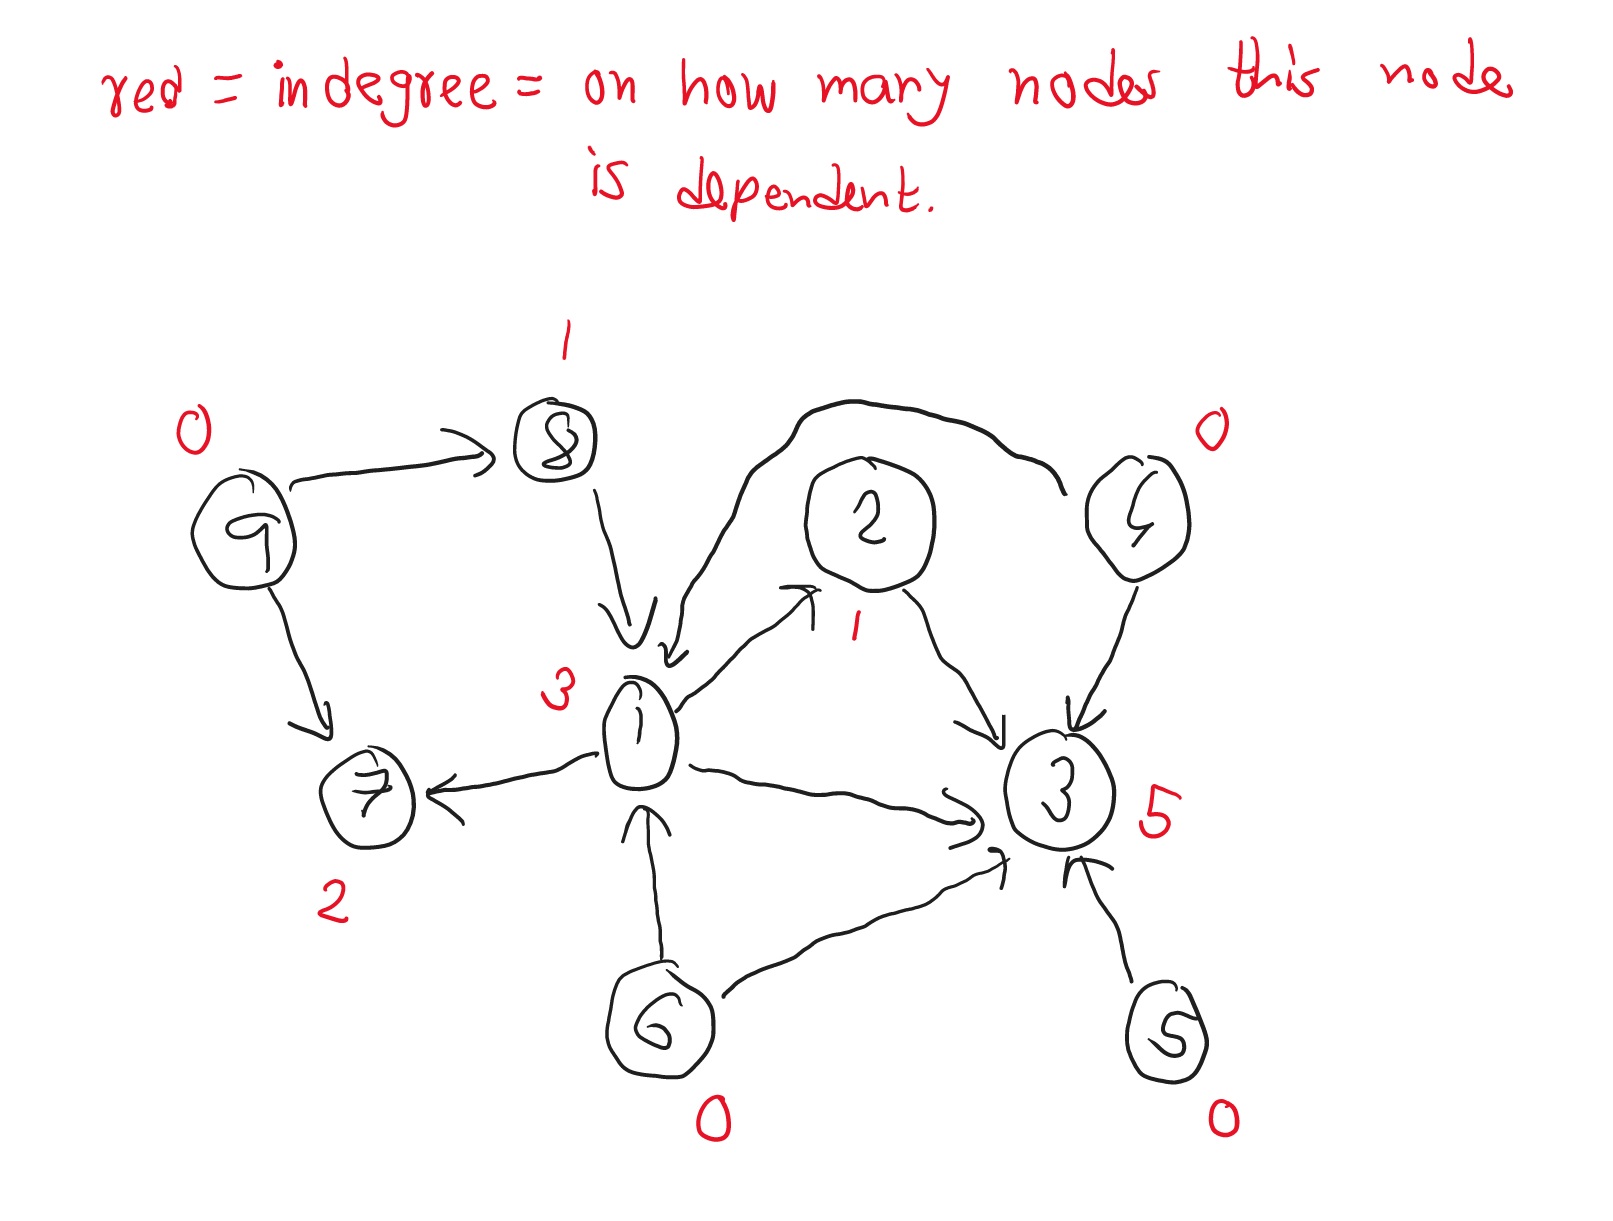 red = indegree = on how many nodes this node
is dependent.
1
0
8
0
9
2
4
1
3
1
7
3
5
2
6
5
0
0